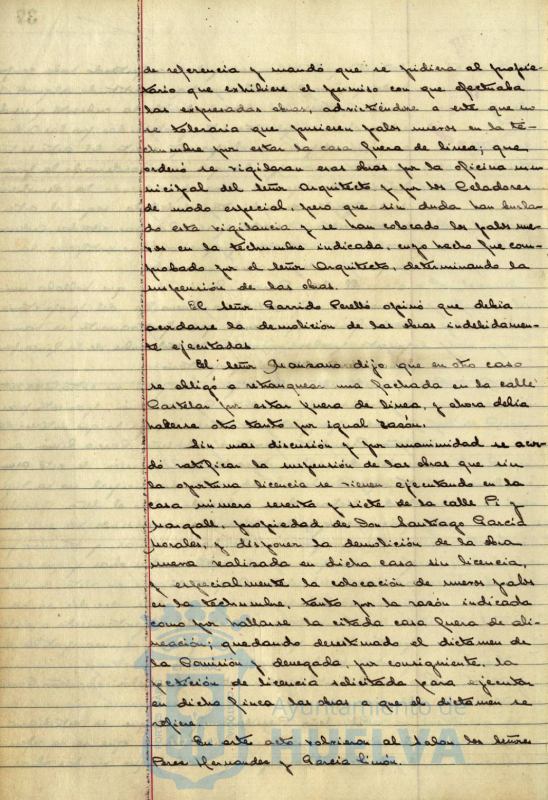 de referencia y mandó que se pidiera al propie-
tario que exhibiere el permiso con que efectuaba
las expresadas obras, advirtiéndose a este que no
se toleraría que pusiesen palos nuevos en la te-
chumbre por estar la casa fuera de línea; que
ordenó se vigilaran esas obras por la oficina mu-
nicipal del Señor Arquitecto y por los Celadores
de modo especial, pero que sin duda han burla-
do esta vigilancia y se han colocado los palos nue-
vos en la techumbre indicada, cuyo hecho fue com-
probado por el Señor Arquitecto, determinando la
suspensión de las obras.
El Señor Garrido Perelló opinó que debía
acordarse la demolición de las obras indebidamen-
te ejecutadas
El Señor Manzano dijo que en otro caso
se obligó a retranquear una fachada en la calle
Castelar por estar fuera de línea, y ahora debía
hacerse otro tanto por igual razón.
Sin mas discusión y por unanimidad se acor-
dó ratificar la suspensión de las obras que sin
la oportuna licencia se vienen ejecutando en la
casa número sesenta y siete de la calle Pi y
Margall, propiedad de Don Santiago García
Morales, y disponer la demolición de la obra
nueva realizada en dicha casa sin licencia,
y especialmente la colocación de nuevos palos
en la techumbre, tanto por la razón indicada
como por hallarse la citada casa fuera de ali-
neación; quedando desestimado el dictamen de
la Comisión y denegada, por consiguiente, la
petición de licencia solicitada para ejecutar
en dicha finca las obras a que el dictamen se
refiere.
En este acto volvieron al Salon los Señores
Perez Hernandez y García Limón.
Ayuntamiento de
HUELVA